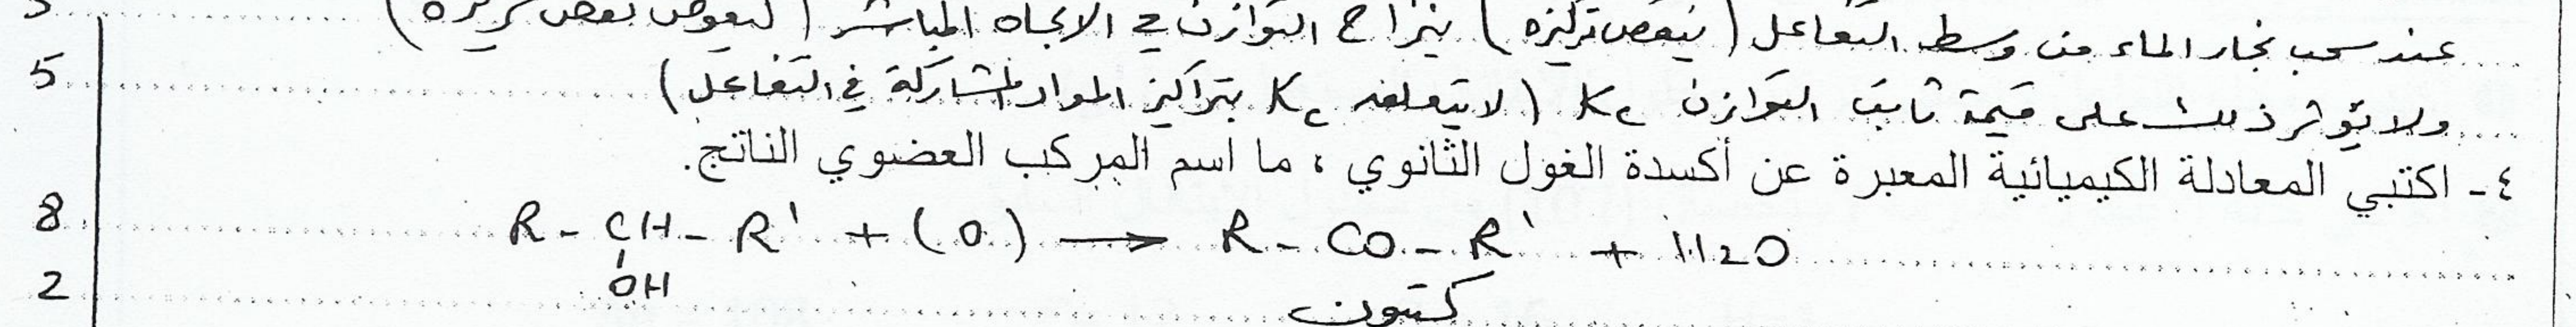 عند سحب بخار الماء من وسط التفاعل (ينقص تركيزه) ينزاح التوازن في الاتجاه المباشر (ليعوض بعض تركيزه)
ولا يؤثر ذلك على قيمة ثابت التوازن Kc (لا يتعلق Kc بتراكيز المواد المشاركة في التفاعل) 5
٤- اكتبي المعادلة الكيميائية المعبرة عن أكسدة الغول الثانوي ، ما اسم المركب العضوي الناتج.
R - CH - R' + (O) → R - CO - R' + H2O 8
OH كتون 2